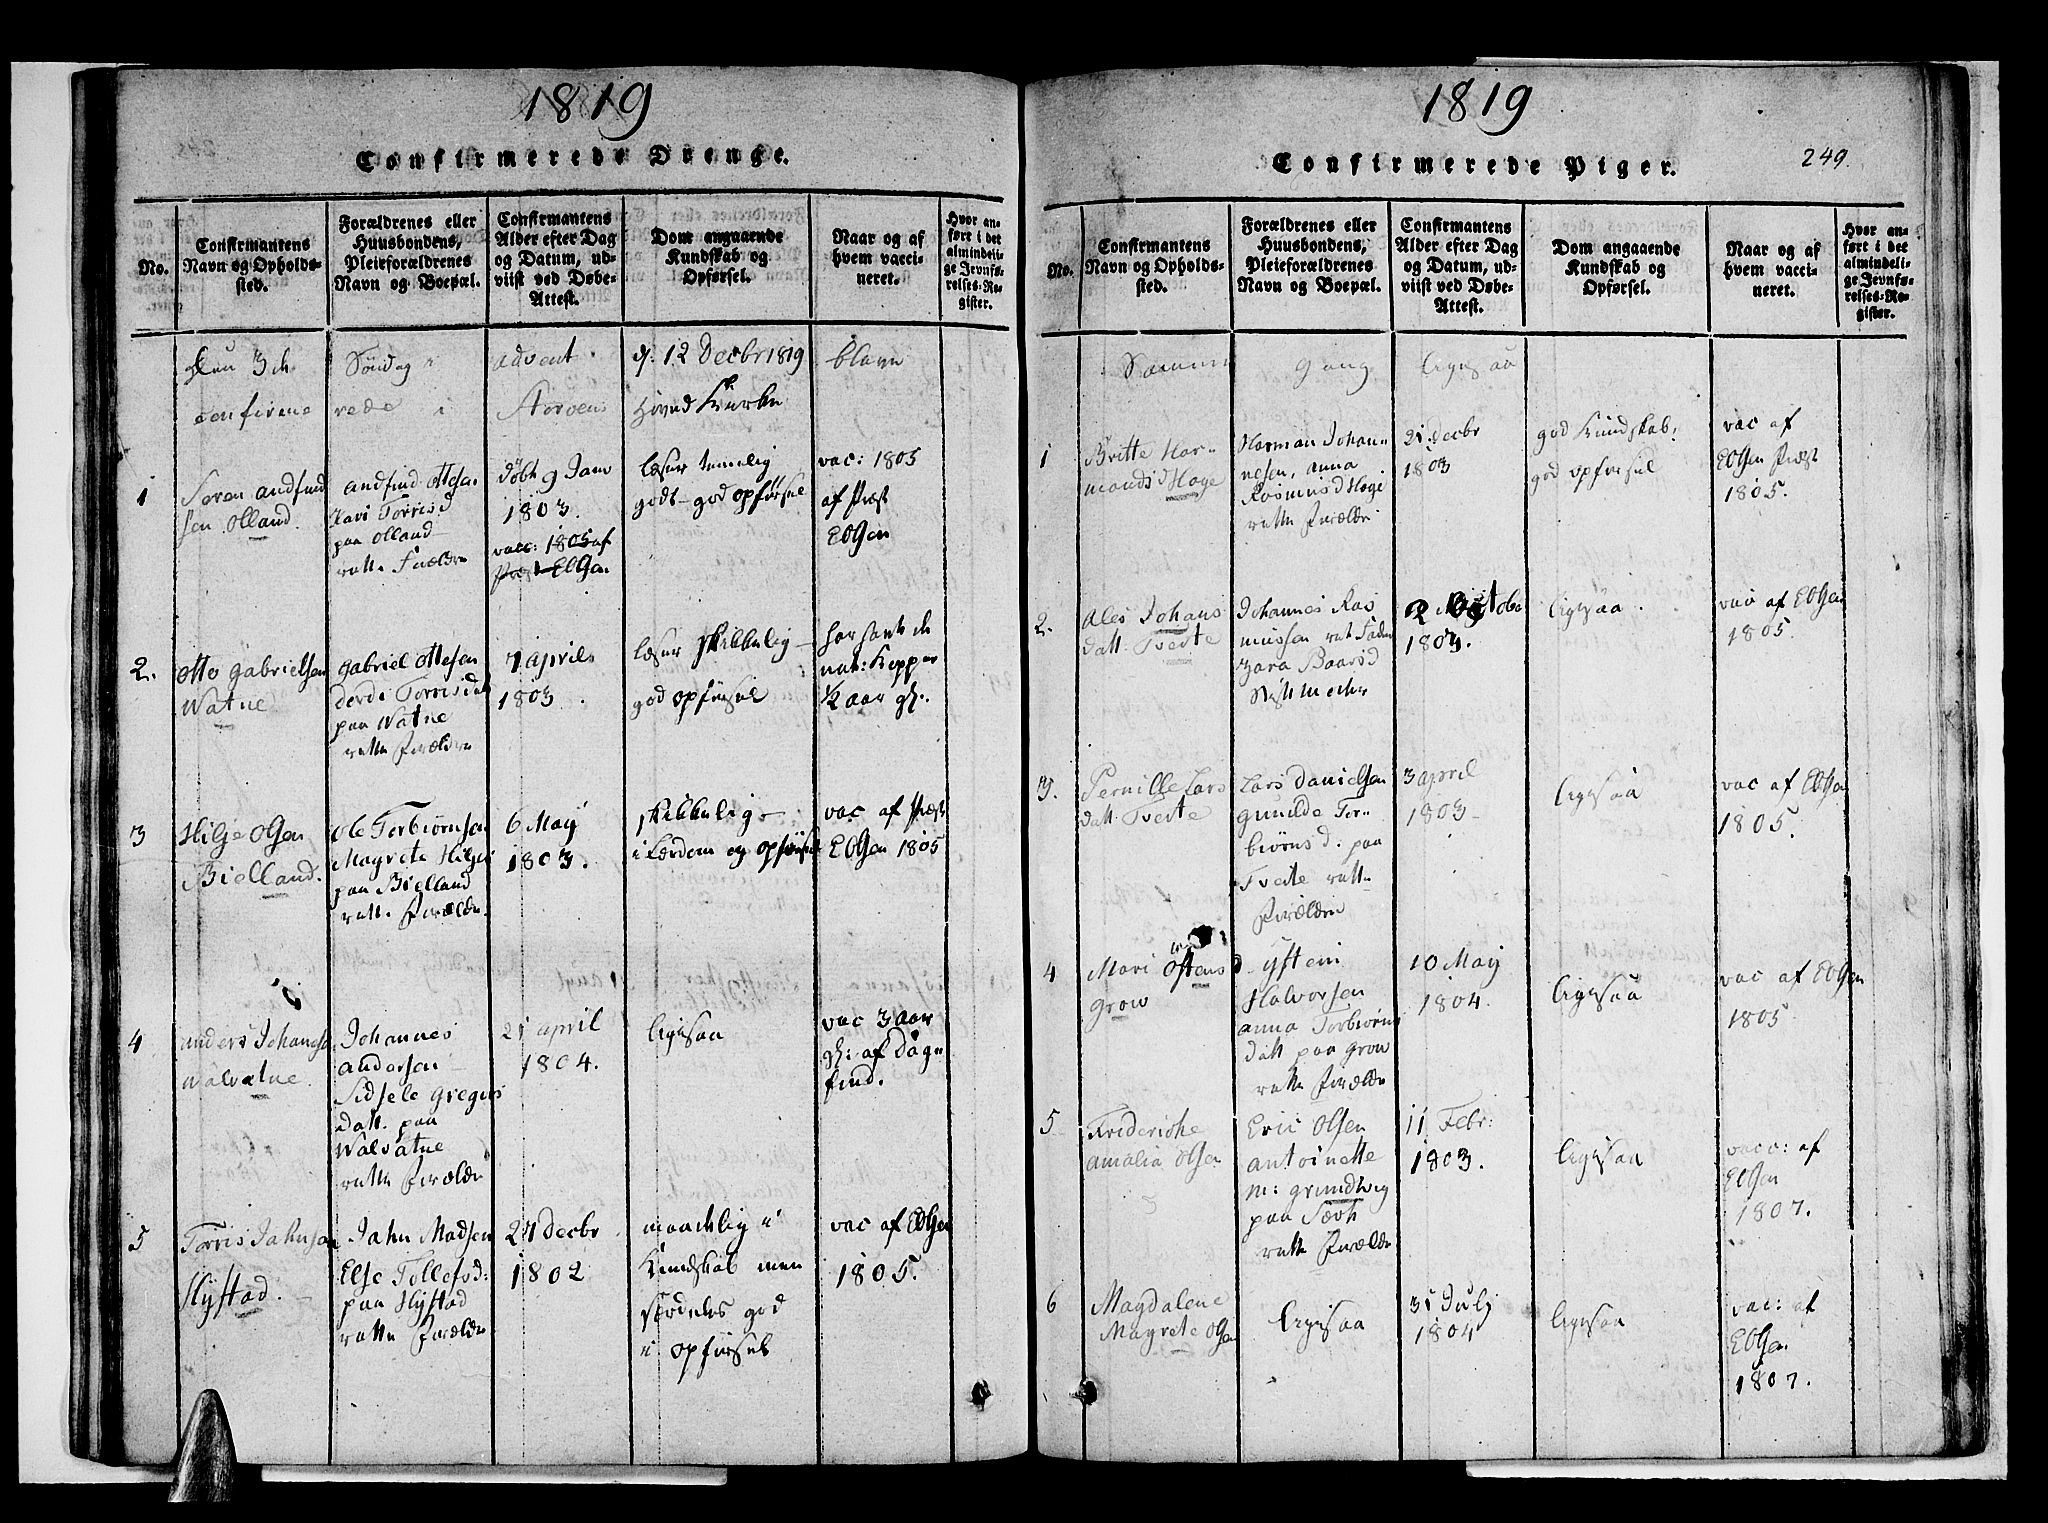 1819
Confirmerede Drenge.
No.
Confirmantens
Navn og Opholds-
sted.
Forældrenes eller
Huusbondens,
Pleieforældrenes
Navn og Boepæl.
Confirmantens
Alder efter Dag
og Datum, ud-
viist ved Døbe-
Attest.
Dom angaaende
Kundskab og
Opførsel.
Naar og af
hvem vacci-
neret.
Hvor an-
ført i det
almindeli-
ge Jevnfø-
relses-Re-
gister.
Den 3de Søndag i advent d. 12 Decbr 1819 bleve
confirme rede i Hoved Kirke
1
Søren andfind
sen Olland.
andfind Ottesen
Kari Torrisd
paa Olland
rette Forældre
døbt 9 Janv
1803.
vacc: 1805 af
Præst Ebsen.
læser temelig
godt - god opførsel
vac: 1805
af Præst
Ebsen
2.
Otto gabrielsen
Watne
gabriel Ottesen
Torrisdat
paa Watne
rette Forældre
7 april
1803.
læser skikkelig
god opførsel
har havt de
nat: Kopper
3
Hilje Olsen
Bielland.
Ole Torbiørnsen
Magrete
paa Bielland
rette Forældre.
6 May
1803.
skikkelig
i Lærdom og opførsel
vac af Præst
Ebsen 1805
4
anders Johansen
Walvatne
Johannes
andersen
Sidsele gregers
datt. paa
Walvatne
rette Forældre
21 april
1804.
ligesaa
vac 3 aar
gl: af Dagn
find.
5
Torris Jahnsen
Hystad.
Jahn Madsen
Else Tollefsd:
paa Hystad
rette Forældre
27 Decbr
1802
maadelig i
Kundskab men
særdeles god
i opførsel
vac af Ebsen
1805.
1819
249.
Confirmerede Piger.
No.
Confirmantens
Navn og Opholds-
sted.
Forældrenes eller
Huusbondens,
Pleieforældrenes
Navn og Boepæl.
Confirmantens
Alder efter Dag
og Datum, ud-
viist ved Døbe-
Attest.
Dom angaaende
Kundskab og
Opførsel.
Naar og af
hvem vacci-
neret.
Hvor an-
ført i det
almindeli-
ge Jevnfø-
relses-Re-
gister.
Samme gang ligesaa
1
Britte Har-
mands d Hage
Harman Johan-
nesen, anna
Rasmusd Hage
rette Forældre
21 Decbr
1803
god Kundskab,
god opførsel
vac af
Ebsen Præst
1805.
2.
Ales Johans
datt. Tveite
Johannes Ras
mussen ret Fader
Baarsd
Stifmoder
2 Octobr
1803.
ligesaa.
vac af Ebsen
1805.
3.
Pernille Lars
datt. Tveite
Lars Danielsen
gunilde Tor-
biørns d. paa
Tveite rette
Forældre
3 april
1803
ligesaa
vac af Ebsen
1805.
4
Mari Østens d
grow
ystein
Halvorsen
anna Torbiørns
datt paa grow
rette Forældre
10 May
1804.
ligesaa
vac af Ebsen
1805
5
Frideriche
amalia Olsen
Eric Olsen
antoinette
m: grundtvig
paa
rette Forældre
11 Febr:
1803.
ligesaa
vacc: af
Ebsen
1807.
6
Magdalene
Magrete Olsen
ligesaa
31 July
1804
ligesaa
vac: af
Ebsen
1807.